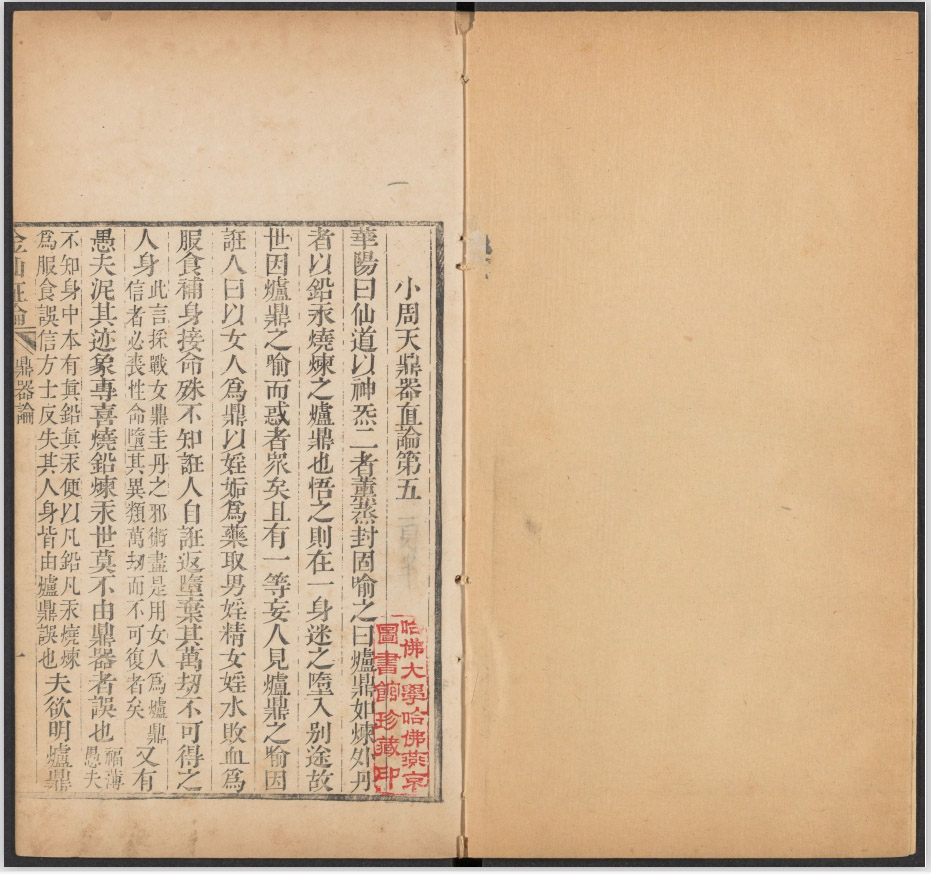 小周天鼎器直論第五
華陽曰仙道以神炁二者薰蒸封固喻之曰爐鼎如煉外丹
者以鉛汞燒煉之爐鼎也悟之則在一身迷之墮入别途故
世因爐鼎之喻而惑者衆矣且有一等妄人見爐鼎之喻因
誑人曰以女人爲鼎以婬姤爲藥取男婬精女婬水敗血爲
服食補身接命殊不知誑人自誑返墮棄其萬刼不可得之
人身此言採戰女鼎圭丹之邪術盡是用女人爲爐鼎信者必喪性命墮其異類萬刼而不可復者矣又有
愚夫泥其迹象專喜燒鉛煉汞世莫不由鼎器者誤也福薄愚夫
不知身中本有眞鉛眞汞便以凡鉛凡汞燒煉爲服食誤信方士反失其人身皆由爐鼎誤也夫欲明爐鼎
金仙證論
鼎器論
一
哈佛大學哈佛燕京
圖書館珍藏印